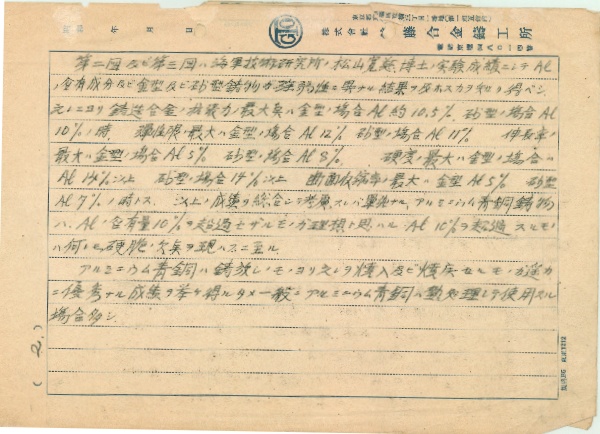 昭和 年 月 日
株式会社 藤合金鋳工所
第二図及ビ第三図ハ海軍技術研究所ノ松山寛慈博士ノ実験成績ニシテAl
ノ含有成分及ビ金型及ビ砂型鋳物ガ 結果ヲ及ホスカヲ知リ得ベシ
元ニヨリ鋳造合金ノ抗張力ノ最大ハ金型ノ場合Al約10.5% 砂型ノ場合Al
10%ノ時 弾性限ノ最大ハ金型ノ場合Al12% 砂型ノ場合Al11% 伸長率ノ
最大ハ金型ノ場合Al5% 砂型ノ場合Al8% 硬度ノ最大ハ金型ノ場合ハ
Al14%以上 砂型ノ場合14%以上 断面収縮率ノ最大ハ金型Al5% 砂型
Al7%ノ時トス 以上ノ成績ヲ綜合シテ考慮スレバ単純ナルアルミニウム青銅鋳物
ハAlノ含有量10%ヲ超過セザルモノガ理想ト思ハル Al10%ヲ超過スルモノ
ハ何レモ硬脆ノ欠点ヲ現ハスニ至ル
アルミニウム青銅ハ鋳放シノモノヨリ之レヲ焼入及ビ焼戻セルモノガ遙カ
ニ優秀ナル成績ヲ挙ゲ得ルタメ一般ニアルミニウム青銅ハ熱処理シテ使用スル
場合多シ
(2.)